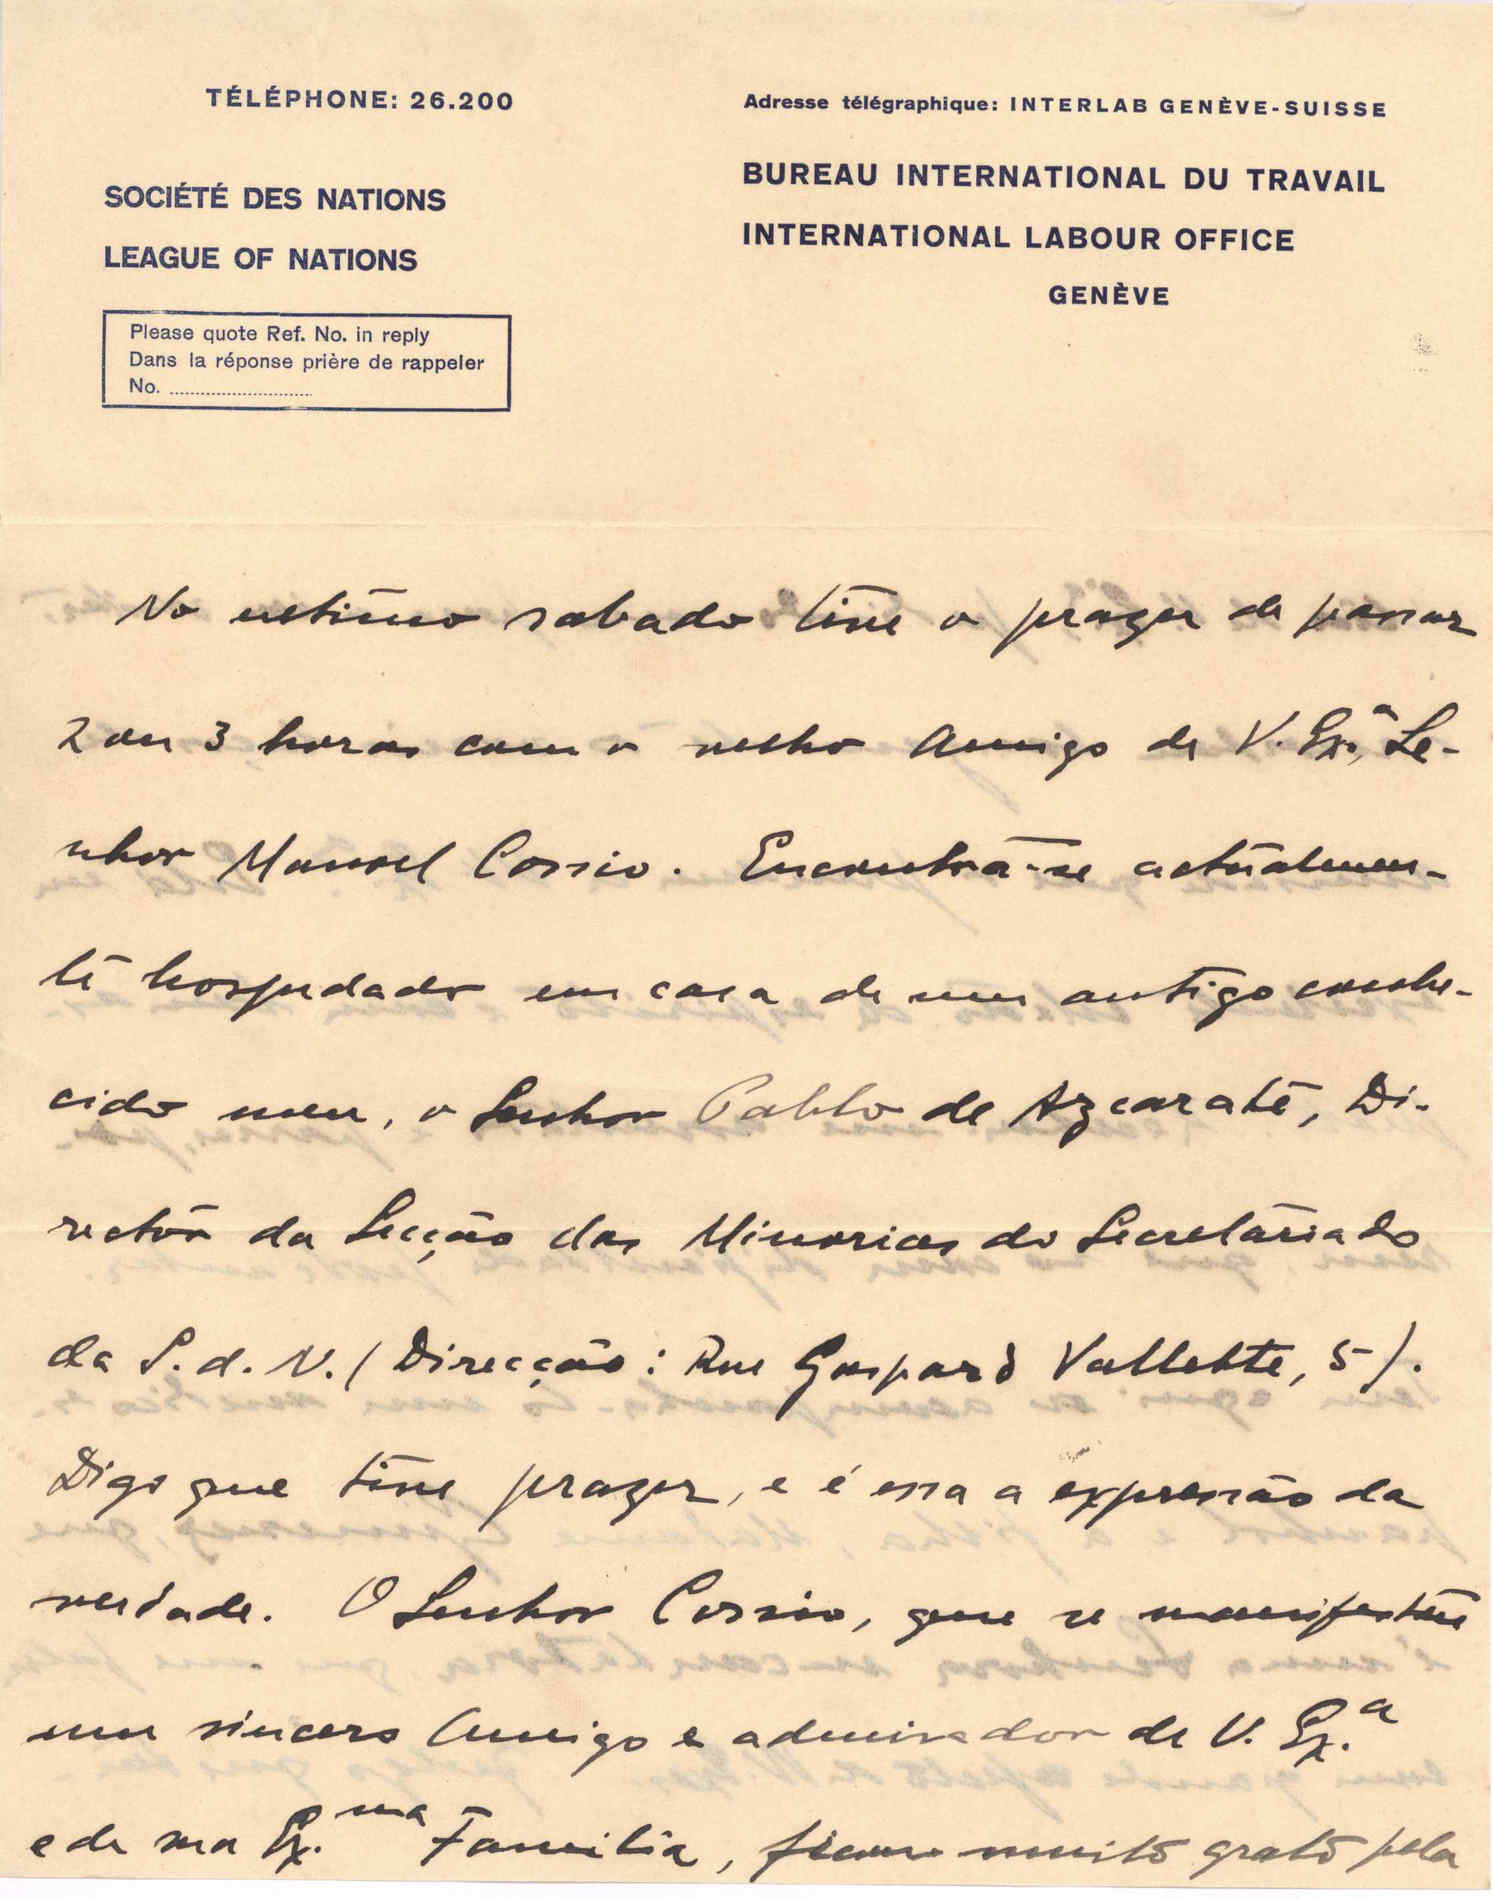 TÉLÉPHONE: 26.200
Adresse télégraphique: INTERLAB GENÈVE-SUISSE
SOCIÉTÉ DES NATIONS
LEAGUE OF NATIONS
BUREAU INTERNATIONAL DU TRAVAIL
INTERNATIONAL LABOUR OFFICE
GENÈVE
Please quote Ref. No. in reply
Dans la réponse prière de rappeler
No. ........................
No ultimo sabado tive o prazer de passar
2 ou 3 horas com o velho Amigo de V. Ex.ª, Se-
nhor Manoel Cossio. Encontra-se actualmen-
te hospedado em casa de um antigo conhe-
cido meu, o Senhor Pablo de Azcarate, Di-
rector da Secção das Minorias do Secretariado
da S. d. N. (Direcção: Rue Gaspard Vallette, 5).
Digo que tive prazer, e é essa a expressão da
verdade. O Senhor Cossio, que se manifestou
um sincero Amigo e admirador de V. Ex.ª
e de sua Ex.ma Familia, ficou muito grato pela